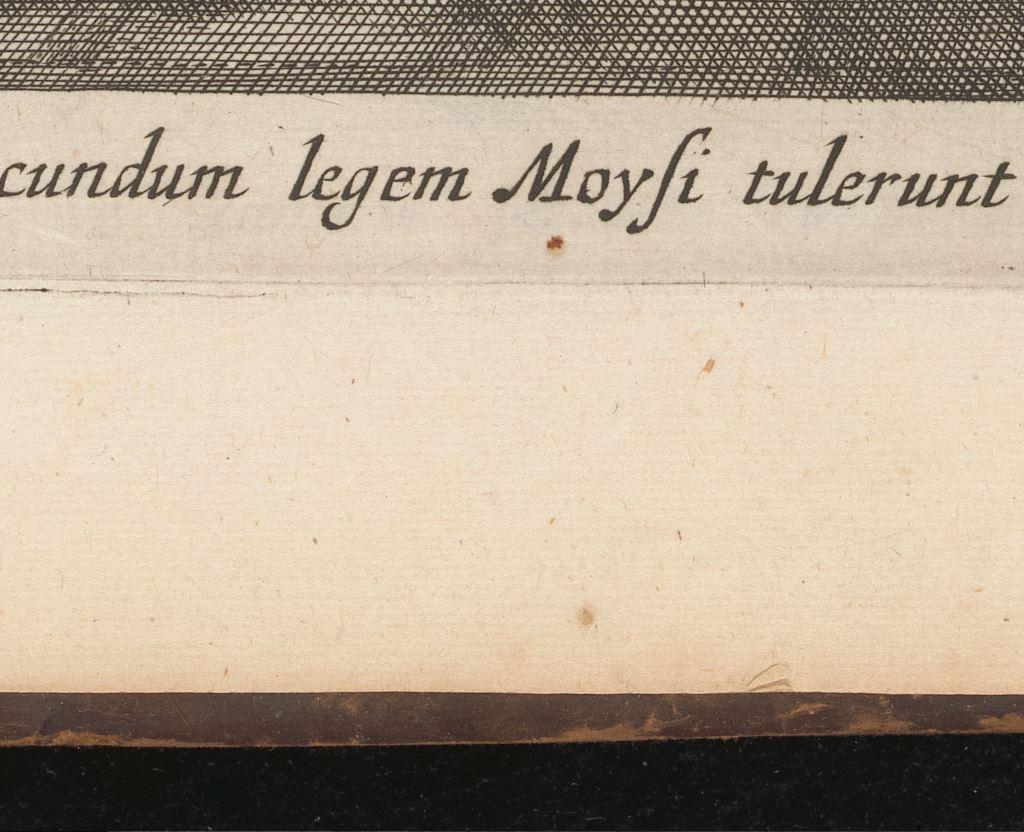 cundum legem Moyſi tulerunt